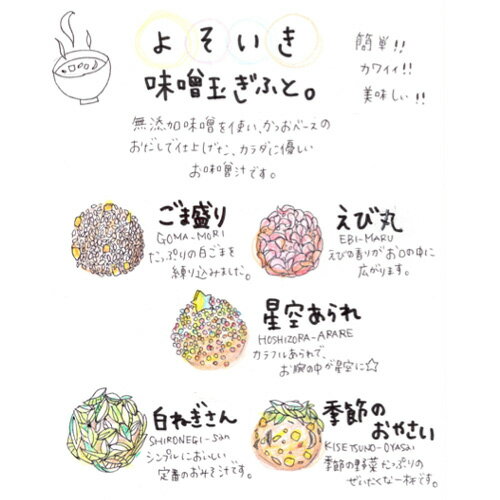 よそいき
味噌玉ぎふと。
簡単!!
カワイイ!!
美味しい!!
無添加味噌を使い、かつおベースの
おだしで仕上げた、カラダに優しい
お味噌汁です。
ごま盛り
GOMA-MORI
たっぷりの白ごまを
練り込みました。
えび丸
EBI-MARU
えびの香りがお口の中に
広がります。
星空あられ
HOSHIZORA-ARARE
カラフルあられで、
お腕の中が星空に☆
白ねぎさん
SHIRONEGI-san
シンプルにおいしい
定番のおみそ汁です。
季節の
おやさい
KISETSUNO-OYASai
季節の野菜たっぷりの
ぜいたくな一杯です。